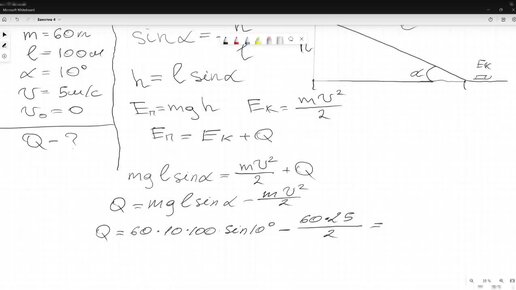 Microsoft Whiteboard
Заметка 4
m = 60м
l = 100м
α = 10°
v = 5м/с
v₀ = 0
Q - ?
sinα = h/l
h = l sinα
Eп = mgh   Eк = mv²/2
Eп = Eк + Q
mglsinα = mv²/2 + Q
Q = mglsinα - mv²/2
Q = 60·10·100 sin10° - 60·25/2 =
h
α
Eк